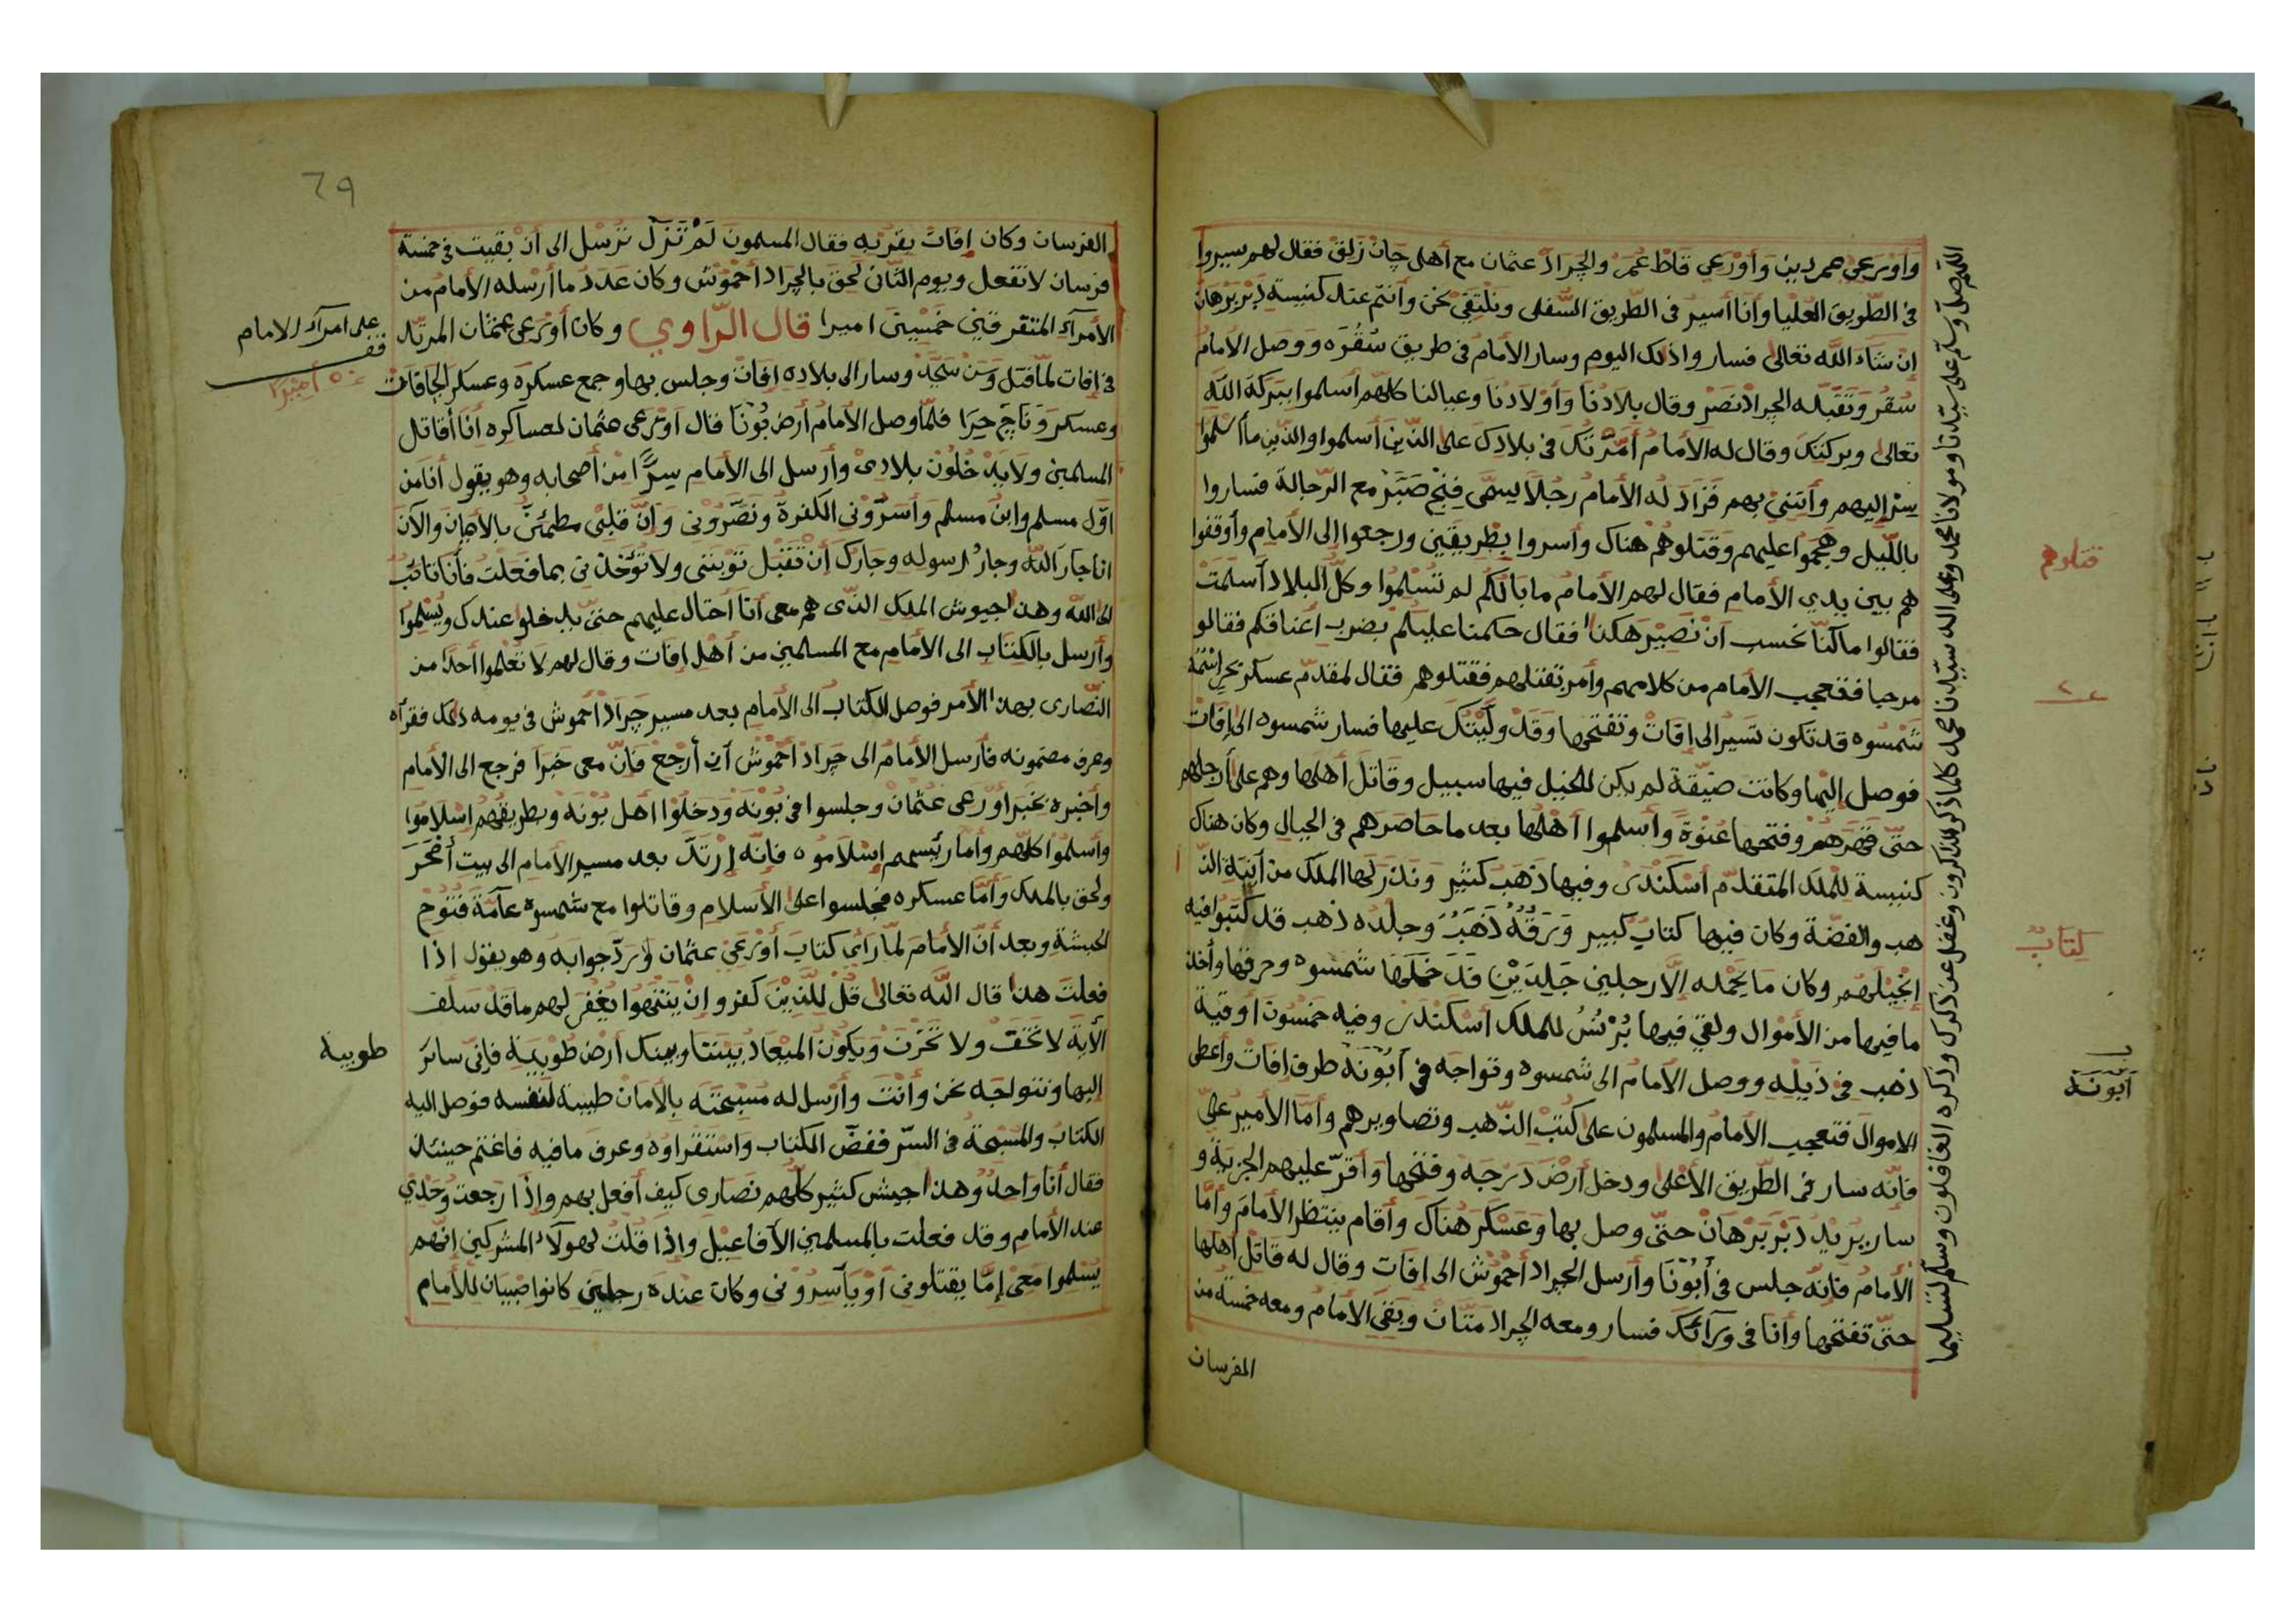 وأورعى حمر دين وأورعي قاط عمر والجراد عثمان مع أهل جان زلق فقال لهم سيروا
في الطّريق العليا وأنا أسير في الطريق السّفلى ونلتقي نحن وأنتم عند كنيسة دبر برهان
إن شاء الله تعالى فساروا ذلك اليوم وسار الأمام في طريق سقره ووصل الأمام
سقر وتقبّله الجراد نصر وقال بلادنا وأولادنا وعيالنا كلّهم أسلموا ببركة الله
تعالى وبركتك وقال له الأمام أمّرتك في بلادك على الذين أسلموا والذين ما أسلموا
سر إليهم وأتني بهم فزاد له الأمام رجلا يسمّى فنح صبر مع الرّجالة فساروا
بالليل وهجموا عليهم وقتلوهم هناك وأسروا بطريقين ورجعوا إلى الأمام وأوقفوا
هم بين يدي الأمام فقال لهم الأمام ما بالكم لم تسلموا وكلّ البلاد أسلمت
فقالوا ما كنّا نحسب أن نصير هكذا فقال حكمنا عليكم بضرب أعناقكم فقالوا
مرحبا فتعجب الأمام من كلامهم وأمر بقتلهم فقتلوهم فقال لمقدّم عسكر
شمسوه قد تكون تسير الى إفات وتفتحها وقد ولّيتك عليها فسار شمسوه الى إفات
فوصل إليها وكانت ضيّقة لم يكن للخيل فيها سبيل وقاتل أهلها وهم على أرجلهم
حتّى قهرهم وفتحها عنوة وأسلموا أهلها بعد ما حاصرهم في الجبال وكان هناك
كنيسة للملك المتقدّم أسكندر وفيها ذهب كثير ونذر لها الملك من آنية الذّ
هب والفضّة وكان فيها كتاب كبير ورقه ذهب وجلده ذهب قد كتبوا فيه
إنجيلهم وكان ما يحمله إلّا رجلين جلدين قد حملها شمسوه وحرقها وأخذ
ما فيها من الأموال ولقي فيها برنس للملك أسكندر وفيه خمسون اوقية
ذهب في ذيله ووصل الأمام الى شمسوه وتواجه في أبونه طرق إفات وأعطى
الاموال فتعجب الأمام والمسلمون على كتب الذّهب وتصاويرهم وأمّا الأمير علي
فانّه سار في الطّريق الأعلى ودخل أرض درجه وفتحها وأقرّ عليهم الجزية و
سار يريد دبر برهان حتّى وصل بها وعسكر هناك وأقام ينتظر الأمام وأمّا
الأمام فانه جلس في أبونا وأرسل الجراد أحموش الى إفات وقال له قاتل أهلها
حتّى تفتحها وأنا في ورائك فسار ومعه الجراد متان وبقى الأمام ومعه خمسة من
الفرسان
اللهم صل وسلم على سيدنا ومولانا محمد وعلى اله سيدنا محمد كلما ذكر الذاكرون وغفل عن ذكرك وذكره الغافلون وسلم تسليما
قتلوهم
كتاب
أبونة
٦٩
الفرسان وكان إفات بقربه فقال المسلمون لم تزل ترسل الى أن بقيت في خمسة
فرسان لا تفعل ويوم الثاني لحق بالجراد أحموش وكان عدد ما أرسله الأمام من
الأمرآء المتفرقين خمسين اميرا قال الرّاوي وكان أورعى عثمان المرتد
في إفات لمّا قتل وسن سجد وسار الى بلاده إفات وجلس بها وجمع عسكره وعسكر الجافات
وعسكر وناج حيرا فلمّا وصل الأمام أرض بونا قال اورعى عثمان لعساكره أنا أقاتل
المسلمين ولا يدخلون بلادى وأرسل الى الأمام سرّا من أصحابه وهو يقول أنا من
اوّل مسلم وابن مسلم وأسرّوني الكفرة ونصّروني وإنّ قلبي مطمئنّ بالأيمان والآن
انا جار الله وجار رسوله وجارك أن تقبل توبتي ولا تؤخذني بما فعلت فأنا تائب
الى الله وهذا جيوش الملك الذّى هم معى أنا أحتال عليهم حتّى يدخلوا عندك ويسلموا
وأرسل بالكتاب الى الأمام مع المسلمين من أهل إفات وقال لهم لا تعلموا أحدا من
النّصارى بهذا الأمر فوصل الكتاب الى الأمام بعد مسير جراد أحموش في يومه ذلك فقرأه
وعرف مضمونه فأرسل الأمام الى جراد أحموش أن أرجع فانّ معى خبرا فرجع الى الأمام
وأخبره بخبر أورعى عثمان وجلسوا في بونه ودخلوا أهل بونه وبطريقهم إسلاموا
وأسلموا كلّهم وأما رئيسهم إسلاموه فانّه إرتدّ بعد مسير الأمام الى بيت أمحر
ولحق بالملك وأمّا عسكره فجلسوا على الأسلام وقاتلوا مع شمسوه عامة فتوح
الحبشة وبعد أنّ الأمام لمّا رأى كتاب أورعي عثمان وردّ جوابه وهو يقول اذا
فعلت هذا قال الله تعالى قل للّذين كفروا إن ينتهوا يغفر لهم ما قد سلف
الآية لا تخف ولا تحزن ويكون الميعاد بيننا وبينك أرض طوبية فإنّي سائر
إليها ونتواجه نحن وأنت وأرسل له مسبحته بالأمان طيبة لنفسه فوصل اليه
الكتاب والمسبحة في السرّ ففضّ الكتاب واستقراوه وعرف ما فيه فاغتم حينئذ
فقال أنا واحد وهذا جيش كثير كلّهم نصارى كيف أفعل بهم وإذا رجعت وحدي
عند الأمام وقد فعلت بالمسلمين الأفاعيل وإذا قلت لهولآء المشركين إنّهم
يسلموا معى إمّا يقتلونى أو يأسرونى وكان عنده رجلين كانوا صبيان للأمام
على امرآء الامام
٥٠ أميرا
طوبية